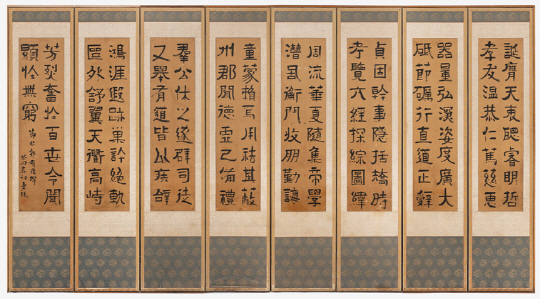 誕膺天衷聰睿明哲
孝友溫恭仁篤慈惠
器量弘深姿度廣大
砥節礪行直道正辭
貞固幹事隱括矯時
考覽六經探綜圖緯
周流華夏隨集帝學
潛隱衡門收朋勤誨
童蒙賴焉用祛其蔽
州郡聞德虛己備禮
羣公休之遂辟司徒
又舉有道皆以疾辭
鴻涯遐跡巢許絕軌
區外舒翼天衢高峙
芳烈奮於百世令聞
顯於無窮